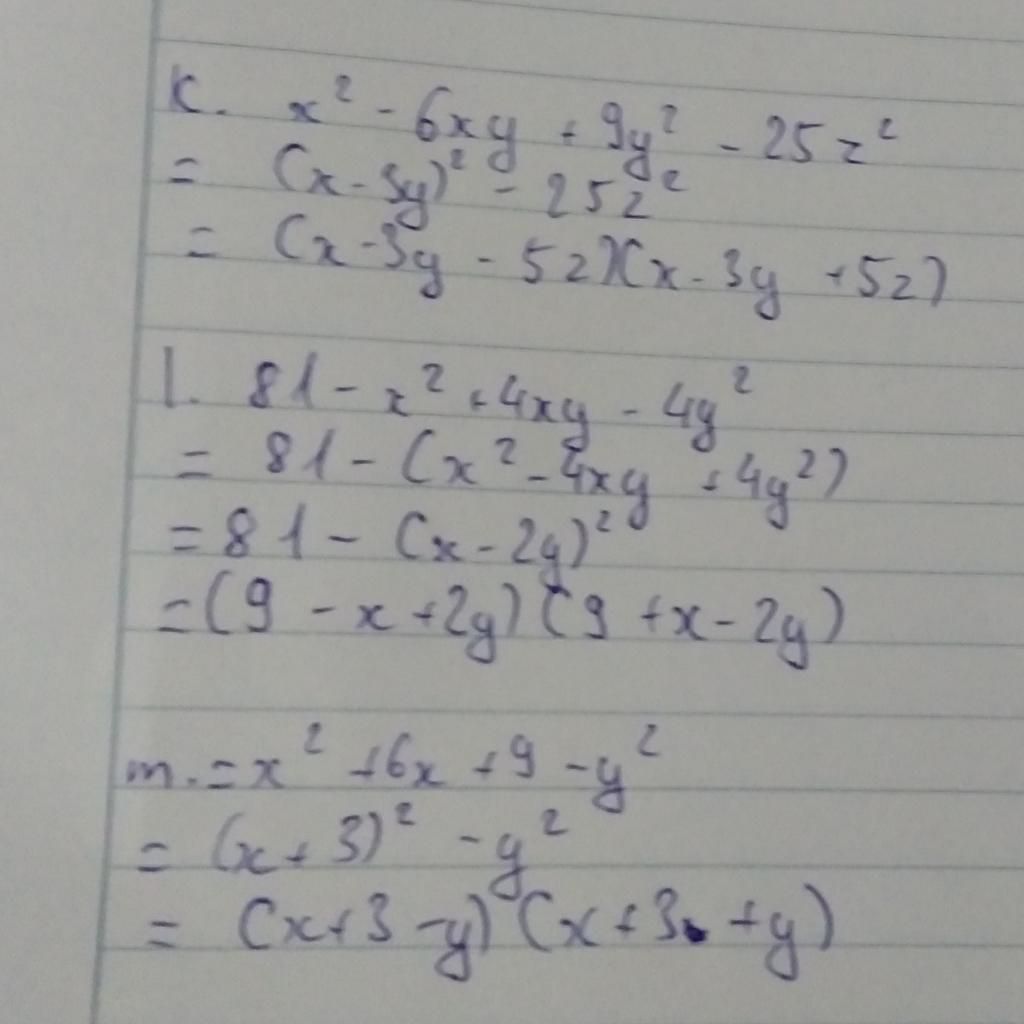 K. x² - 6xy + 9y² - 25z²
= (x - 3y)² - 25z²
= (x - 3y - 5z)(x - 3y + 5z)
l. 81 - x² + 4xy - 4y²
= 81 - (x² - 4xy + 4y²)
= 81 - (x - 2y)²
= (9 - x + 2y)(9 + x - 2y)
m. = x² + 6x + 9 - y²
= (x + 3)² - y²
= (x + 3 - y)(x + 3 + y)